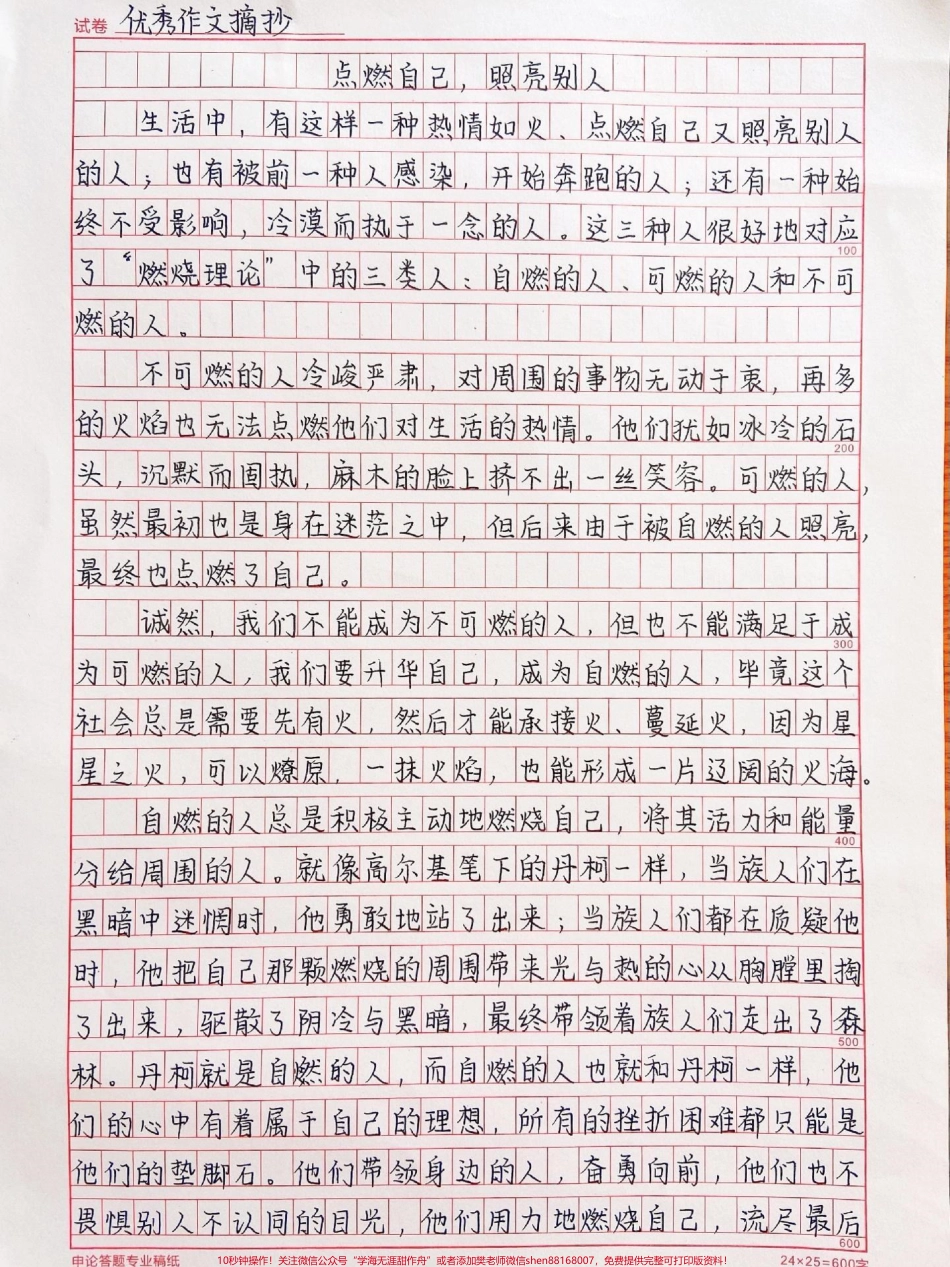 试卷 优秀作文摘抄
点燃自己，照亮别人
生活中，有这样一种热情如火、点燃自己又照亮别人
的人；也有被前一种人感染，开始奔跑的人；还有一种始
终不受影响，冷漠而执于一念的人。这三种人很好地对应
100
了“燃烧理论”中的三类人：自燃的人、可燃的人和不可
燃的人。
不可燃的人冷峻严肃，对周围的事物无动于衷，再多
的火焰也无法点燃他们对生活的热情。他们犹如冰冷的石
200
头，沉默而固执，麻木的脸上挤不出一丝笑容。可燃的人，
虽然最初也是身在迷茫之中，但后来由于被自燃的人照亮，
最终也点燃了自己。
诚然，我们不能成为不可燃的人，但也不能满足于成
300
为可燃的人，我们要升华自己，成为自燃的人，毕竟这个
社会总是需要先有火，然后才能承接火、蔓延火，因为星
星之火，可以燎原，一抹火焰，也能形成一片辽阔的火海。
自燃的人总是积极主动地燃烧自己，将其活力和能量
400
分给周围的人。就像高尔基笔下的丹柯一样，当族人们在
黑暗中迷惘时，他勇敢地站了出来；当族人们都在质疑他
时，他把自己那颗燃烧的周围带来光与热的心从胸膛里掏
了出来，驱散了阴冷与黑暗，最终带领着族人们走出了森
500
林。丹柯就是自燃的人，而自燃的人也就和丹柯一样，他
们的心中有着属于自己的理想，所有的挫折困难都只能是
他们的垫脚石。他们带领身边的人，奋勇向前，他们也不
畏惧别人不认同的目光，他们用力地燃烧自己，流尽最后
600
申论答题专业稿纸 10秒钟操作！关注微信公众号“学海无涯甜作舟”或者添加樊老师微信shen88168007，免费提供完整可打印版资料！ 24×25=600字